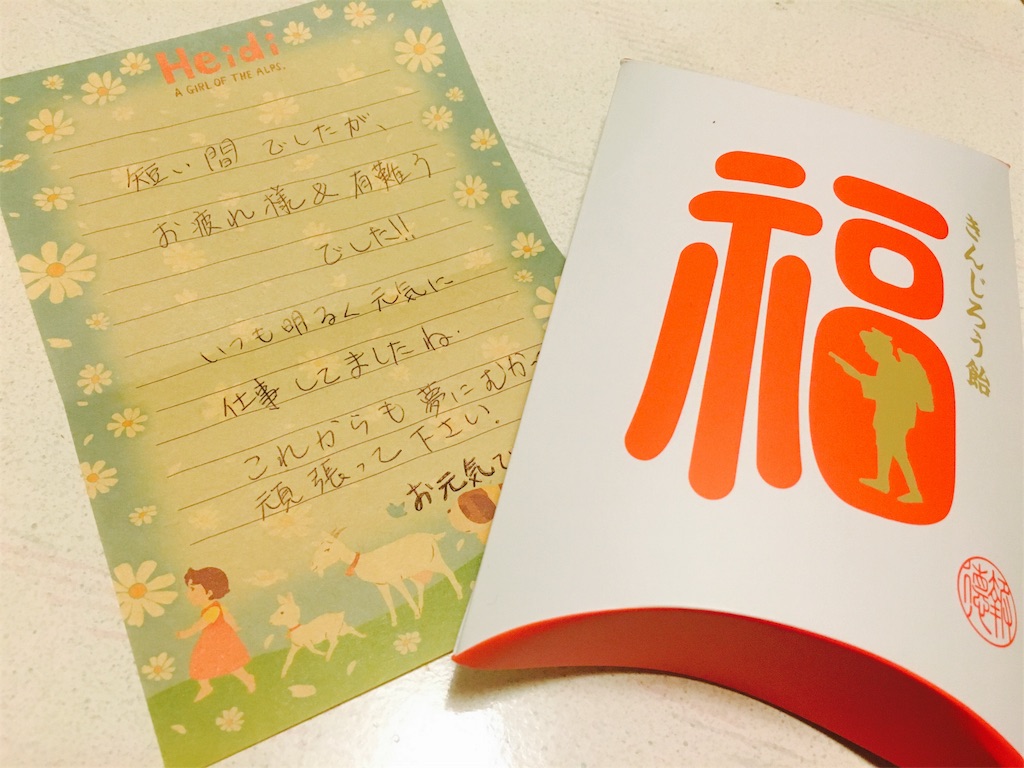 Heidi
A GIRL OF THE ALPS.
短い間でしたが、
お疲れ様&有難う
でした!!
いつも明るく元気に
仕事してましたね.
これからも夢にむかっ
頑張って下さい.
お元気で
福
きんじろう飴